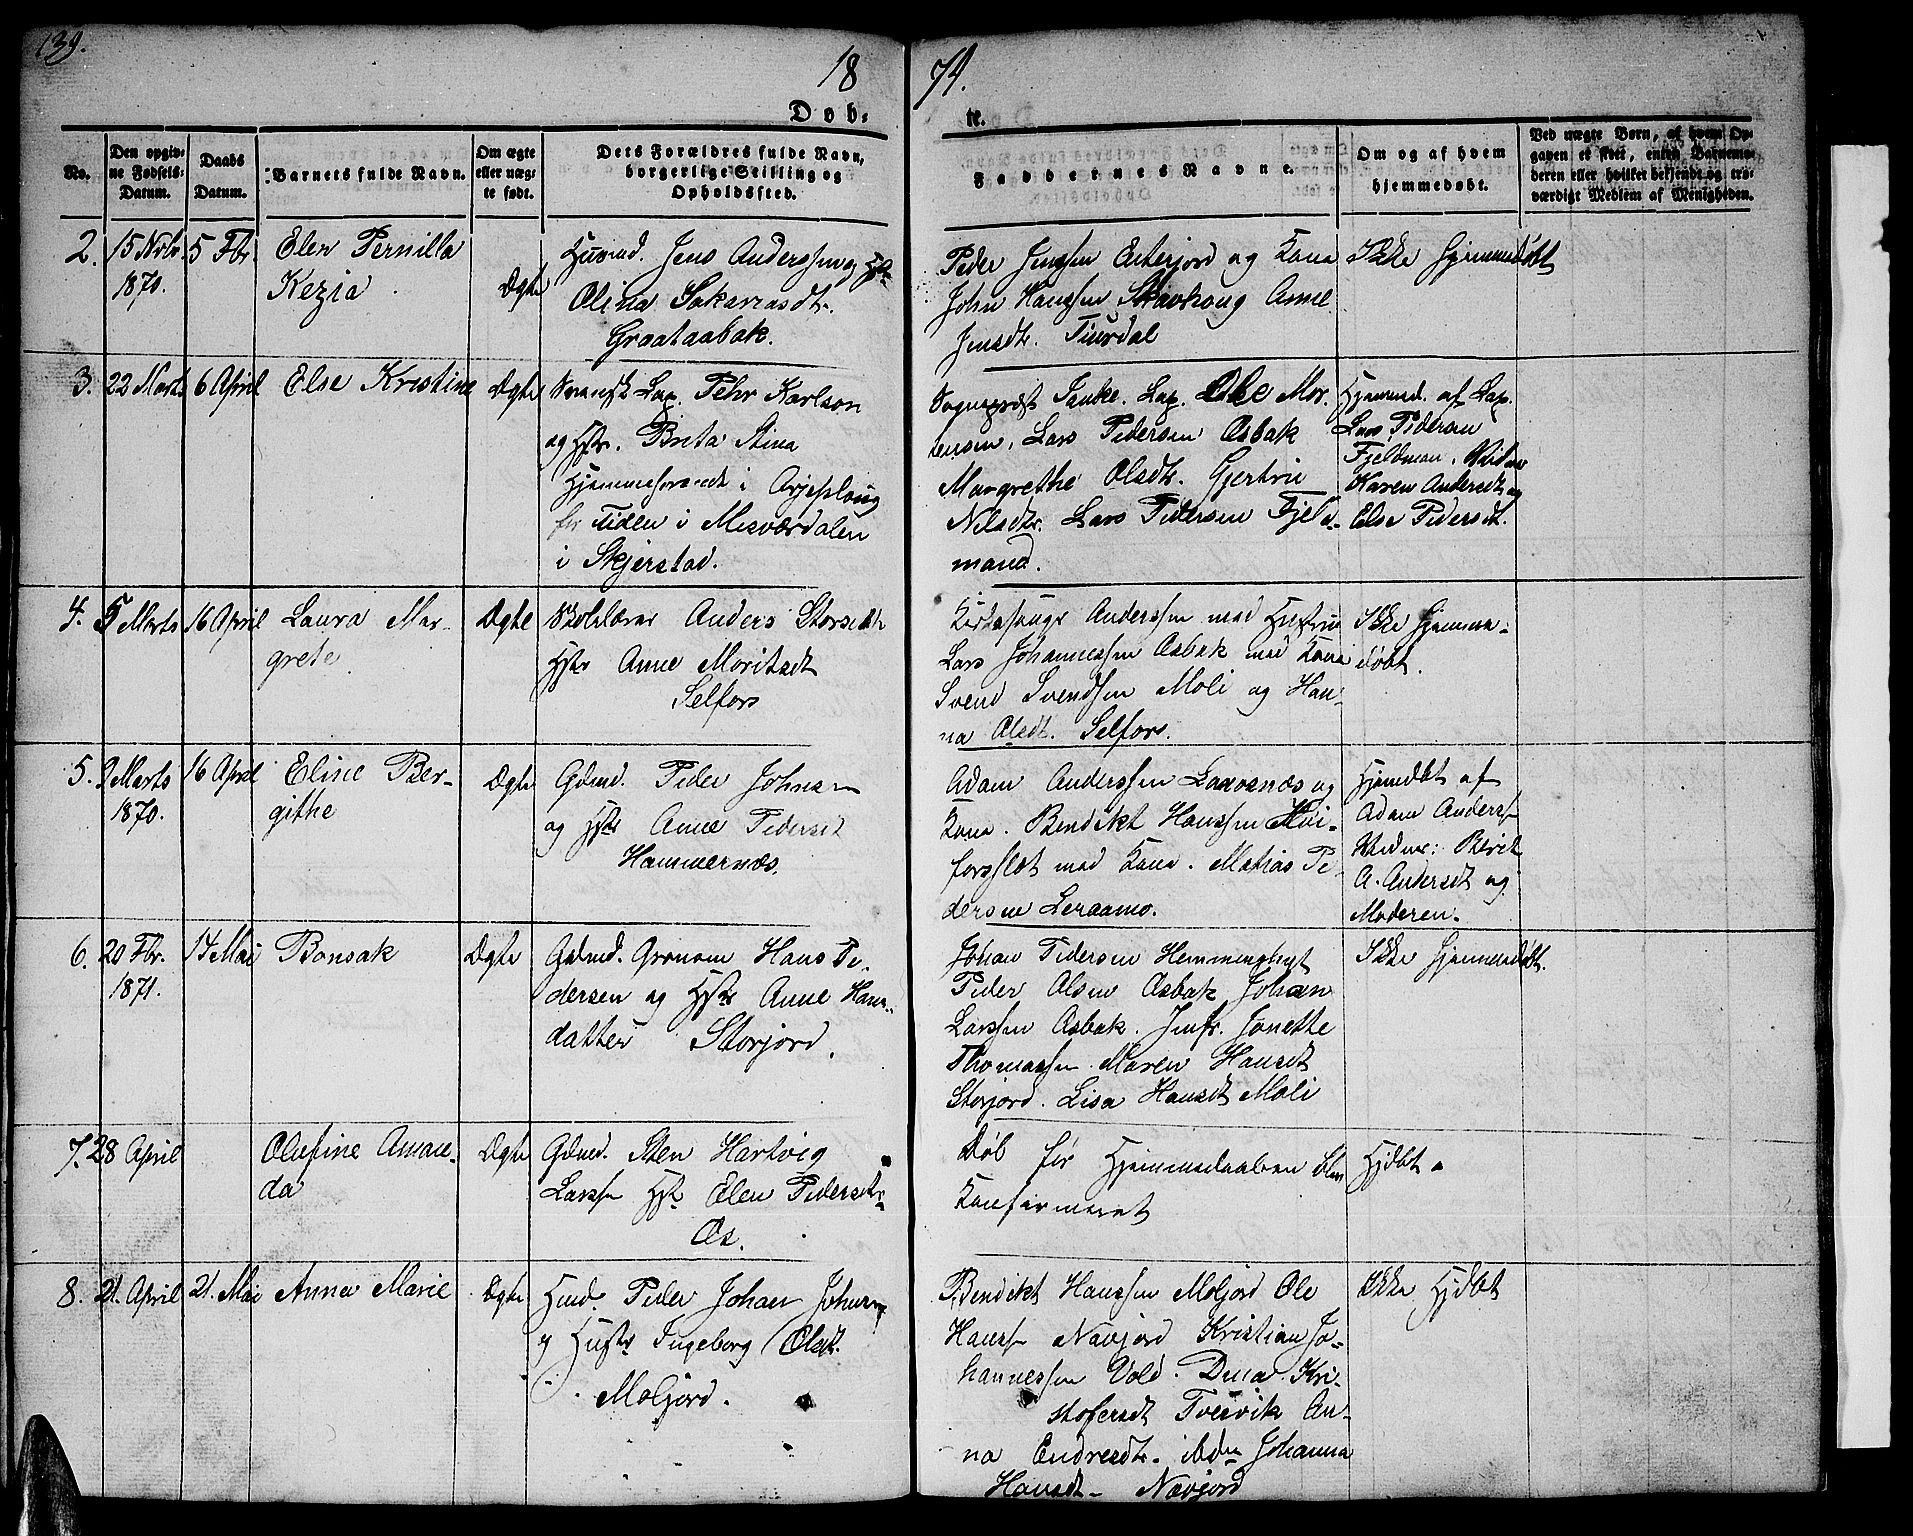 139.
18 71.
Døb= te.
No.
Den opgiv=
ne Fødsels=
Datum.
Daabs
Datum.
Barnets fulde Navn.
Om ægte
eller uæg=
te født.
Dets Forældres fulde Navn,
borgerlige Stilling og
Opholdssted.
Faddernes Navne.
Om og af hvem
hjemmedøbt.
Ved uægte Børn, af hvem Op=
gaven er skeet, enten Barnemo=
deren eller hvilket bekjendt og tro=
værdigt Medlem af Menigheden.
2.
15 Novbr
1870.
5 Fbr.
Elen Pernilla
Kezia
Ægte
Huusmd. Jens Anderssen og Hstr
Olina Sakariasdtr.
Graataabak.
Peder Jenssen Esterjord og Kone
John Hanssen Skavhoug Anne
Jensdtr.
Ikke Hjemmedøbt
3.
22 Marts
6 April
Else Kristine
Ægte
Svensk Lap. Pehr Karlson
og Hstr. Brita Stina
Hjemmehørende i Arjeploug
for Tiden i Misværdalen
i Skjerstad.
Sognepræst Tanke. Lap. Ole Mor-
tensen, Lars Pedersen Osbak
Margrethe Olsdtr. Gjertrud
Nilsdtr. Lars Pedersen Fjeld-
mand.
Hjemmd. af Lap.
Lars Pedersen
Fjeldman. Vidner
Karen Andersdt og
Else Pedersdt.
4.
5 Marts
16 April
Laura Mar-
grete
Ægte
Skolelærer Anders Storseth
Hstr Anne Moritsdt
Selfors
Kirkesanger Anderssen med Hustru
Lars Johannessen Osbak med Kone
Svend Svendsen Moli og Han-
na Olsdt. Selfors.
Ikke Hjemme-
døbt.
5.
9 Marts
1870.
16 April
Eline Ber-
githe
Ægte
Gdmd. Peder Johnsen
og Hstr Anne Pedersdt
Hammernæs.
Adam Anderssen Laxosnæs og
Kone. Bendikt Hanssen
med Kone. Matias Pe-
dersen Leraamo.
Hjemdbt af
Adam Anderss
Vidner: Berit
A. Andersdt og
Moderen.
6.
20 Fbr.
1871.
14 Mai
Bonsak
Ægte
Gdmd. Gronom Hans Pe-
dersen og Hstr Anne Hans-
datter Storjord.
Johan Pedersen Hemminghyt
Peder Olsen Osbak Johan
Larssen Osbak. Jmfr. Jonette
Thomassen Maren Hansdt
Storjord. Lisa Hansdt Moli
Ikke Hjemmedøbt.
7.
28 April
Olufine Aman-
da
Ægte
Gdmd. Sten Hartvig
Larssn Hstr Elen Pedersdtr
Os.
Død før Hjemmedaaben blev
Konfirmeret
Hjdbt.
8.
21. April
21. Mai
Anna Marie
Ægte
Hmd. Peder Johan Johnsen
og Hustr Ingeborg Olsdt.
Moljord.
Bendikt Hanssen Moljord Ole
Hanssn Nævjord Kristian Jo-
hannessen Vold. Dina Kri-
stofersdt Tvervik An-
na Endresdtr. ibdm Johanna
Hansdt- Nævjord
Ikke Hjdbt